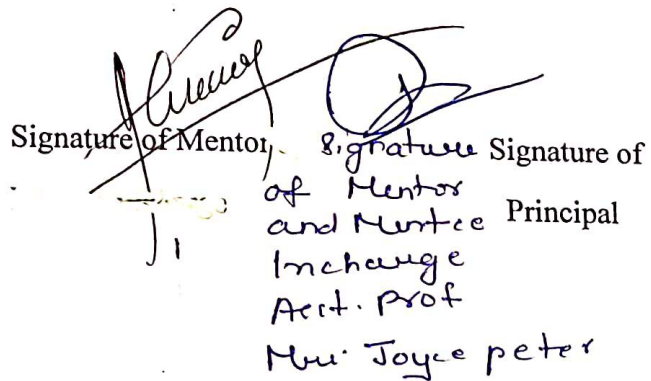 Signature of Mentor
Signature
of Mentor
and Mentee
Incharge
Asst. Prof
Mrs. Joyce peter
Signature of
Principal